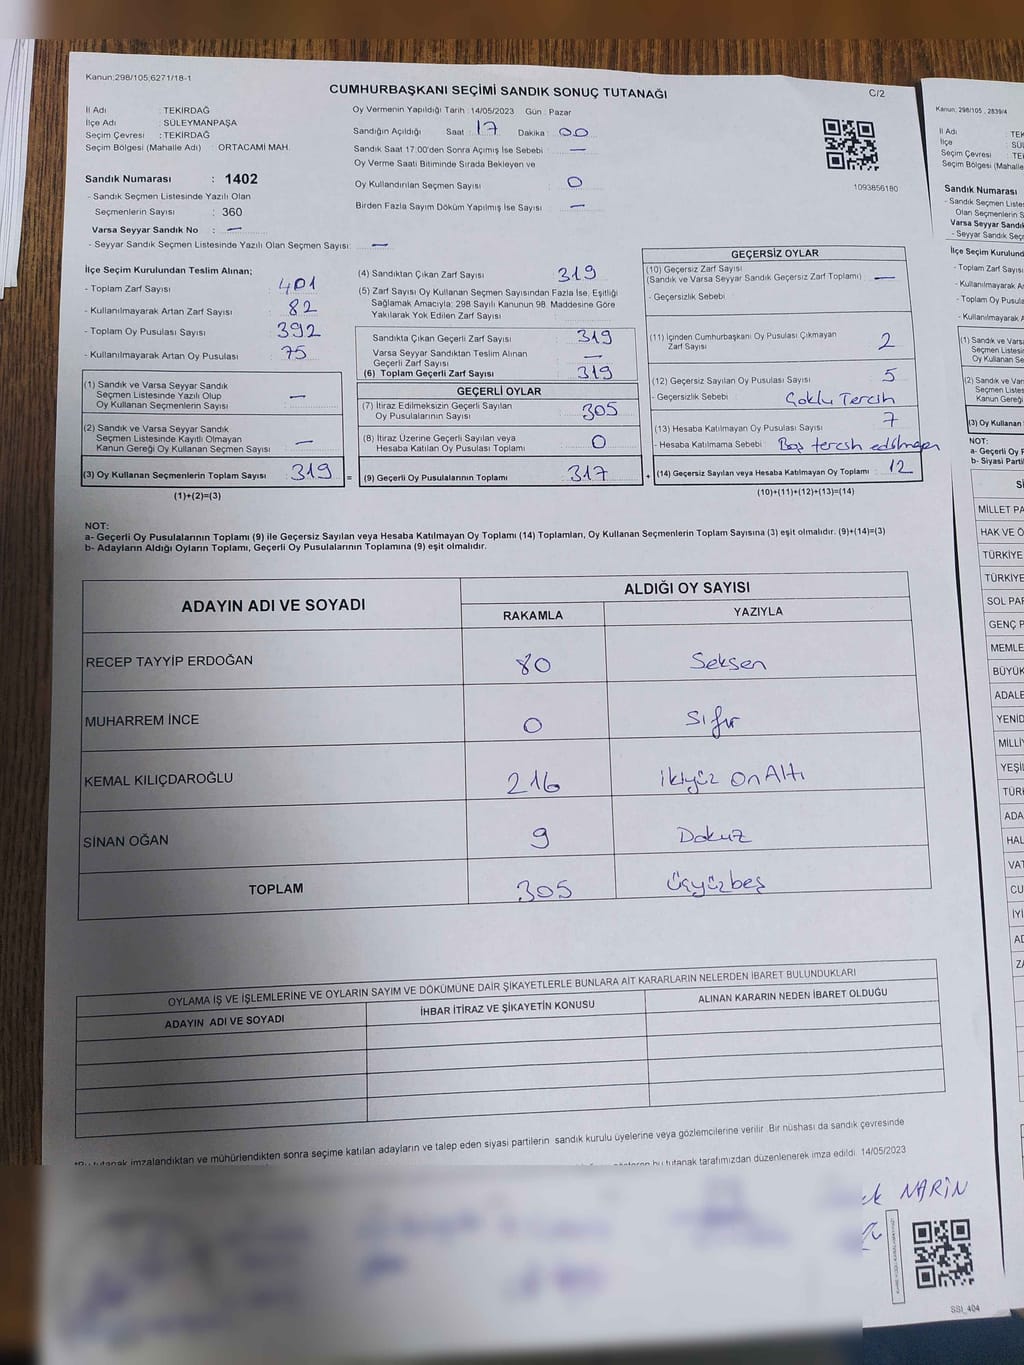 Kanun;298/105;6271/18-1
CUMHURBAŞKANI SEÇİMİ SANDIK SONUÇ TUTANAĞI
C/2
İl Adı : TEKİRDAĞ
İlçe Adı : SÜLEYMANPAŞA
Seçim Çevresi : TEKİRDAĞ
Seçim Bölgesi (Mahalle Adı) : ORTACAMİ MAH.
Sandık Numarası : 1402
- Sandık Seçmen Listesinde Yazılı Olan
Seçmenlerin Sayısı : 360
Varsa Seyyar Sandık No : —
- Seyyar Sandık Seçmen Listesinde Yazılı Olan Seçmen Sayısı: —
Oy Vermenin Yapıldığı Tarih : 14/05/2023 Gün : Pazar
Sandığın Açıldığı Saat : 17 Dakika : 00
Sandık Saat 17:00'den Sonra Açımış İse Sebebi : —
Oy Verme Saati Bitiminde Sırada Bekleyen ve
Oy Kullandırılan Seçmen Sayısı : 0
Birden Fazla Sayım Döküm Yapılmış İse Sayısı : —
1093856180
İlçe Seçim Kurulundan Teslim Alınan;
- Toplam Zarf Sayısı : 401
- Kullanılmayarak Artan Zarf Sayısı : 82
- Toplam Oy Pusulası Sayısı : 392
- Kullanılmayarak Artan Oy Pusulası : 75
(1) Sandık ve Varsa Seyyar Sandık
Seçmen Listesinde Yazılı Olup
Oy Kullanan Seçmenlerin Sayısı : —
(2) Sandık ve Varsa Seyyar Sandık
Seçmen Listesinde Kayıtlı Olmayan
Kanun Gereği Oy Kullanan Seçmen Sayısı : —
(3) Oy Kullanan Seçmenlerin Toplam Sayısı : 319 =
(1)+(2)=(3)
(4) Sandıktan Çıkan Zarf Sayısı : 319
(5) Zarf Sayısı Oy Kullanan Seçmen Sayısından Fazla İse, Eşitliği
Sağlamak Amacıyla; 298 Sayılı Kanunun 98. Maddesine Göre
Yakılarak Yok Edilen Zarf Sayısı :
Sandıkta Çıkan Geçerli Zarf Sayısı : 319
Varsa Seyyar Sandıktan Teslim Alınan
Geçerli Zarf Sayısı : —
(6) Toplam Geçerli Zarf Sayısı : 319
GEÇERLİ OYLAR
(7) İtiraz Edilmeksizin Geçerli Sayılan
Oy Pusulalarının Sayısı : 305
(8) İtiraz Üzerine Geçerli Sayılan veya
Hesaba Katılan Oy Pusulası Toplamı : 0
(9) Geçerli Oy Pusulalarının Toplamı : 317 +
GEÇERSİZ OYLAR
(10) Geçersiz Zarf Sayısı
(Sandık ve Varsa Seyyar Sandık Geçersiz Zarf Toplamı) : —
- Geçersizlik Sebebi :
(11) İçinden Cumhurbaşkanı Oy Pusulası Çıkmayan
Zarf Sayısı : 2
(12) Geçersiz Sayılan Oy Pusulası Sayısı : 5
- Geçersizlik Sebebi : Çoklu Tercih
(13) Hesaba Katılmayan Oy Pusulası Sayısı : 7
- Hesaba Katılmama Sebebi : Boş tercih edilmeyen
(14) Geçersiz Sayılan veya Hesaba Katılmayan Oy Toplamı : 12
(10)+(11)+(12)+(13)=(14)
NOT:
a- Geçerli Oy Pusulalarının Toplamı (9) ile Geçersiz Sayılan veya Hesaba Katılmayan Oy Toplamı (14) Toplamları, Oy Kullanan Seçmenlerin Toplam Sayısına (3) eşit olmalıdır. (9)+(14)=(3)
b- Adayların Aldığı Oyların Toplamı, Geçerli Oy Pusulalarının Toplamına (9) eşit olmalıdır.
ADAYIN ADI VE SOYADI
ALDIĞI OY SAYISI
RAKAMLA YAZIYLA
RECEP TAYYİP ERDOĞAN 80 Seksen
MUHARREM İNCE 0 Sıfır
KEMAL KILIÇDAROĞLU 216 ikiyüz OnAltı
SİNAN OĞAN 9 Dokuz
TOPLAM 305 üçyüzbeş
OYLAMA İŞ VE İŞLEMLERİNE VE OYLARIN SAYIM VE DÖKÜMÜNE DAİR ŞİKAYETLERLE BUNLARA AİT KARARLARIN NELERDEN İBARET BULUNDUKLARI
ADAYIN ADI VE SOYADI
İHBAR İTİRAZ VE ŞİKAYETİN KONUSU
ALINAN KARARIN NEDEN İBARET OLDUĞU
tutanak imzalandıktan ve mühürlendikten sonra seçime katılan adayların ve talep eden siyasi partilerin sandık kurulu üyelerine veya gözlemcilerine verilir. Bir nüshası da sandık çevresinde
bu tutanak tarafımızdan düzenlenerek imza edildi. 14/05/2023
NARİN
SSI_404
Kanun; 298/105 , 2839/4
İl Adı : TEK
İlçe
Seçim Çevresi : TE
Seçim Bölgesi (Mahalle
Sandık Numarası
- Sandık Seçmen Liste
Olan Seçmenlerin S
Varsa Seyyar Sandı
- Seyyar Sandık Seç
İlçe Seçim Kurulundan
- Toplam Zarf Sayısı
- Kullanılmayarak A
- Toplam Oy Pusula
- Kullanılmayarak
(1) Sandık ve Vars
Seçmen Listesin
Oy Kullanan Se
(2) Sandık ve Varsa
Seçmen Listesi
Kanun Gereği
(3) Oy Kullanan
NOT:
a- Geçerli Oy P
b- Siyasi Parti
MİLLET PA
HAK VE Ö
TÜRKİYE
TÜRKİYE
SOL PAR
GENÇ P
MEMLE
BÜYÜK
ADALE
YENİD
MİLLİ
YEŞİL
TÜRK
ADA
HAL
VAT
CU
İYİ
AD